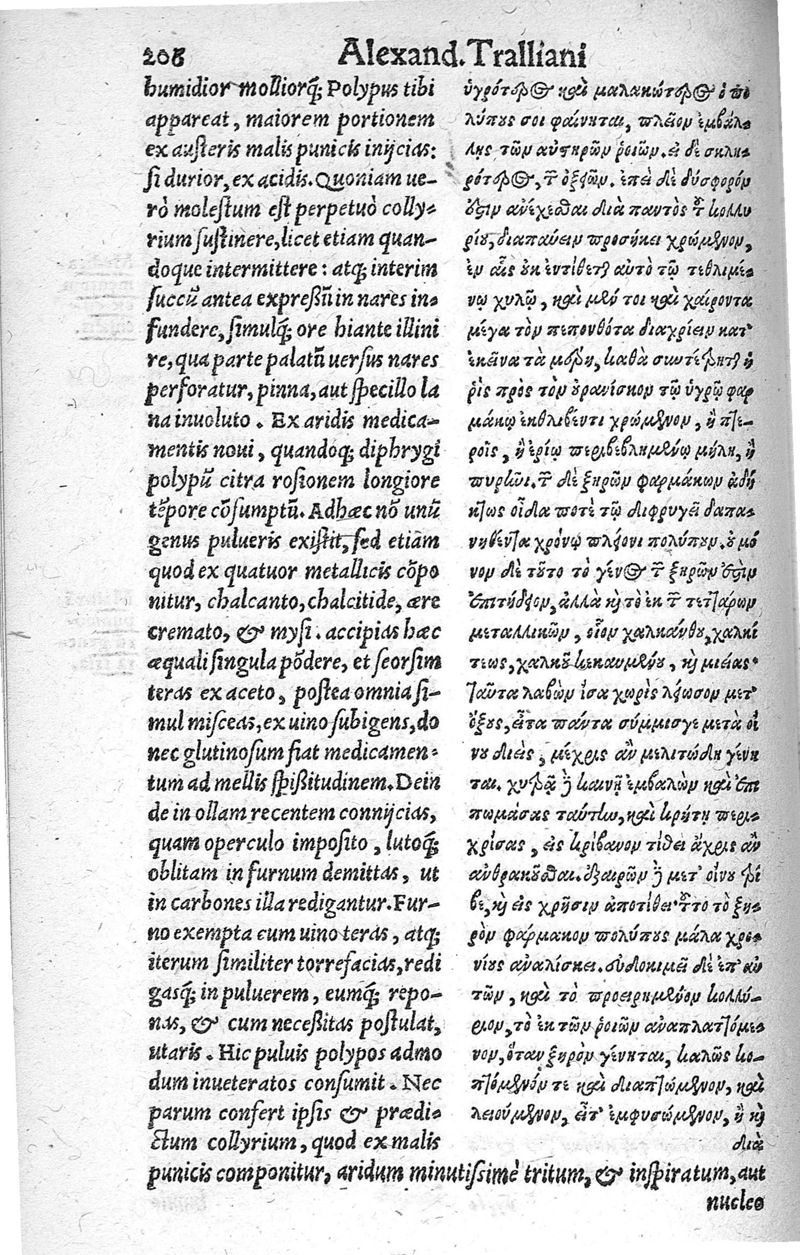 208
Alexand. Tralliani
humidior molliorq́; Polypus tibi
appareat, maiorem portionem
ex austeris malis punicis inijcias:
si durior, ex acidis. Quoniam ue-
rò molestum est perpetuò colly-
rium sustinere, licet etiam quan-
doque intermittere: atq́; interim
succũ antea expressũ in nares in-
fundere, simulq́; ore hiante illini
re, qua parte palatũ uersus nares
perforatur, pinna, aut specillo la
na inuoluto. Ex aridis medica-
mentis noui, quandoq́; diphrygi
polypũ citra rosionem longiore
tẽpore cõsumptũ. Adhæc nõ unũ
genus pulueris existit, sed etiam
quod ex quatuor metallicis cõpo
nitur, chalcanto, chalcitide, ære
cremato, & mysi. accipias hæc
æquali singula põdere, et seorsim
teras ex aceto, postea omnia si-
mul misceas, ex uino subigens, do
nec glutinosum fiat medicamen-
tum ad mellis spißitudinem. Dein
de in ollam recentem connijcias,
quam operculo imposito, lutoq́;
oblitam in furnum demittas, ut
in carbones illa redigantur. Fur-
no exempta cum uino teras, atq́;
iterum similiter torrefacias, redi
gasq́; in puluerem, eumq́; repo-
nas, & cum necessitas postulat,
utaris. Hic puluis polypos admo
dum inueteratos consumit. Nec
parum confert ipsis & prædi-
ctum collyrium, quod ex malis
punicis componitur, aridum minutissimè tritum, & inspiratum, aut
nucleo
ὑγρότερος καὶ μαλακώτερος ὁ πο
λύπους σοι φαίνηται, πλεῖον ἐμβάλ-
λῃς τῶν αὐστηρῶν ῥοιῶν. εἰ δὲ σκλη-
ρότερος, τῶν ὀξέων. ἐπεὶ δὲ δύσφορόν
ἐστιν ἀνέχεσθαι διὰ παντὸς τοῦ κολλυ
ρίου, διαπαύειν προσήκει χρώμενον,
ἐν αἷς οὐκ ἐντίθεται αὐτὸ τῷ τεθλιμέ-
νῳ χυλῷ, καὶ μέν τοι καὶ χαίροντα
μέγα τὸν πεπονθότα διαχρίειν κατ'
ἐκεῖνα τὰ μέρη, καθὰ συντέτρηται ἡ
ρὶς πρὸς τὸν οὐρανίσκον τῷ ὑγρῷ φαρ
μάκῳ ἐκθλιβέντι χρώμενον, ἢ πτε-
ροῖς, ἢ ἐρίῳ περιβεβλημένῳ μήλῃ, ἢ
πυρῆνι. τῶν δὲ ξηρῶν φαρμάκων ἀδή
κτως οἶδα ποτὲ τῷ διφρυγεῖ δαπα-
νηθέντα χρόνῳ πλείονι πολύπουν. οὐ μό
νον δὲ τοῦτο τὸ γένος τῶν ξηρῶν ἐστιν
ἐπιτήδειον, ἀλλὰ καὶ τὸ ἐκ τῶν τεττάρων
μεταλλικῶν, οἷον χαλκάνθου, χαλκί
τεως, χαλκοῦ κεκαυμένου, καὶ μίσεως·
ταῦτα λαβὼν ἴσα χωρὶς λείωσον μετ'
ὄξους, εἶτα πάντα σύμμισγε μετὰ οἴ
νου διεὶς, μέχρις ἂν μελιτώδη γένη
ται. χύτρᾳ δὲ καινῇ ἐμβαλὼν καὶ ἐπι
πωμάσας ταύτην, καὶ κρήτῃ περι-
χρίσας, εἰς κρίβανον τίθει ἄχρις ἂν
ἀνθρακοῦσθαι. ἐξαιρῶν δὲ μετ' οἴνου τρί
βε, καὶ εἰς χρῆσιν ἀποτίθει. τοῦτο τὸ ξη-
ρὸν φάρμακον πολύπους μάλα χρο-
νίους ἀναλίσκει. εὐδοκιμεῖ δὲ ἐπ' αὐ
τῶν, καὶ τὸ προειρημένον κολλύ-
ριον, τὸ ἐκ τῶν ῥοιῶν ἀναπλαττόμε-
νον, ὅταν ξηρὸν γένηται, καλῶς κο-
πτόμενόν τε καὶ διαττώμενον, καὶ
λειούμενον, εἶτ' ἐμφυσώμενον, ἢ καὶ
διὰ